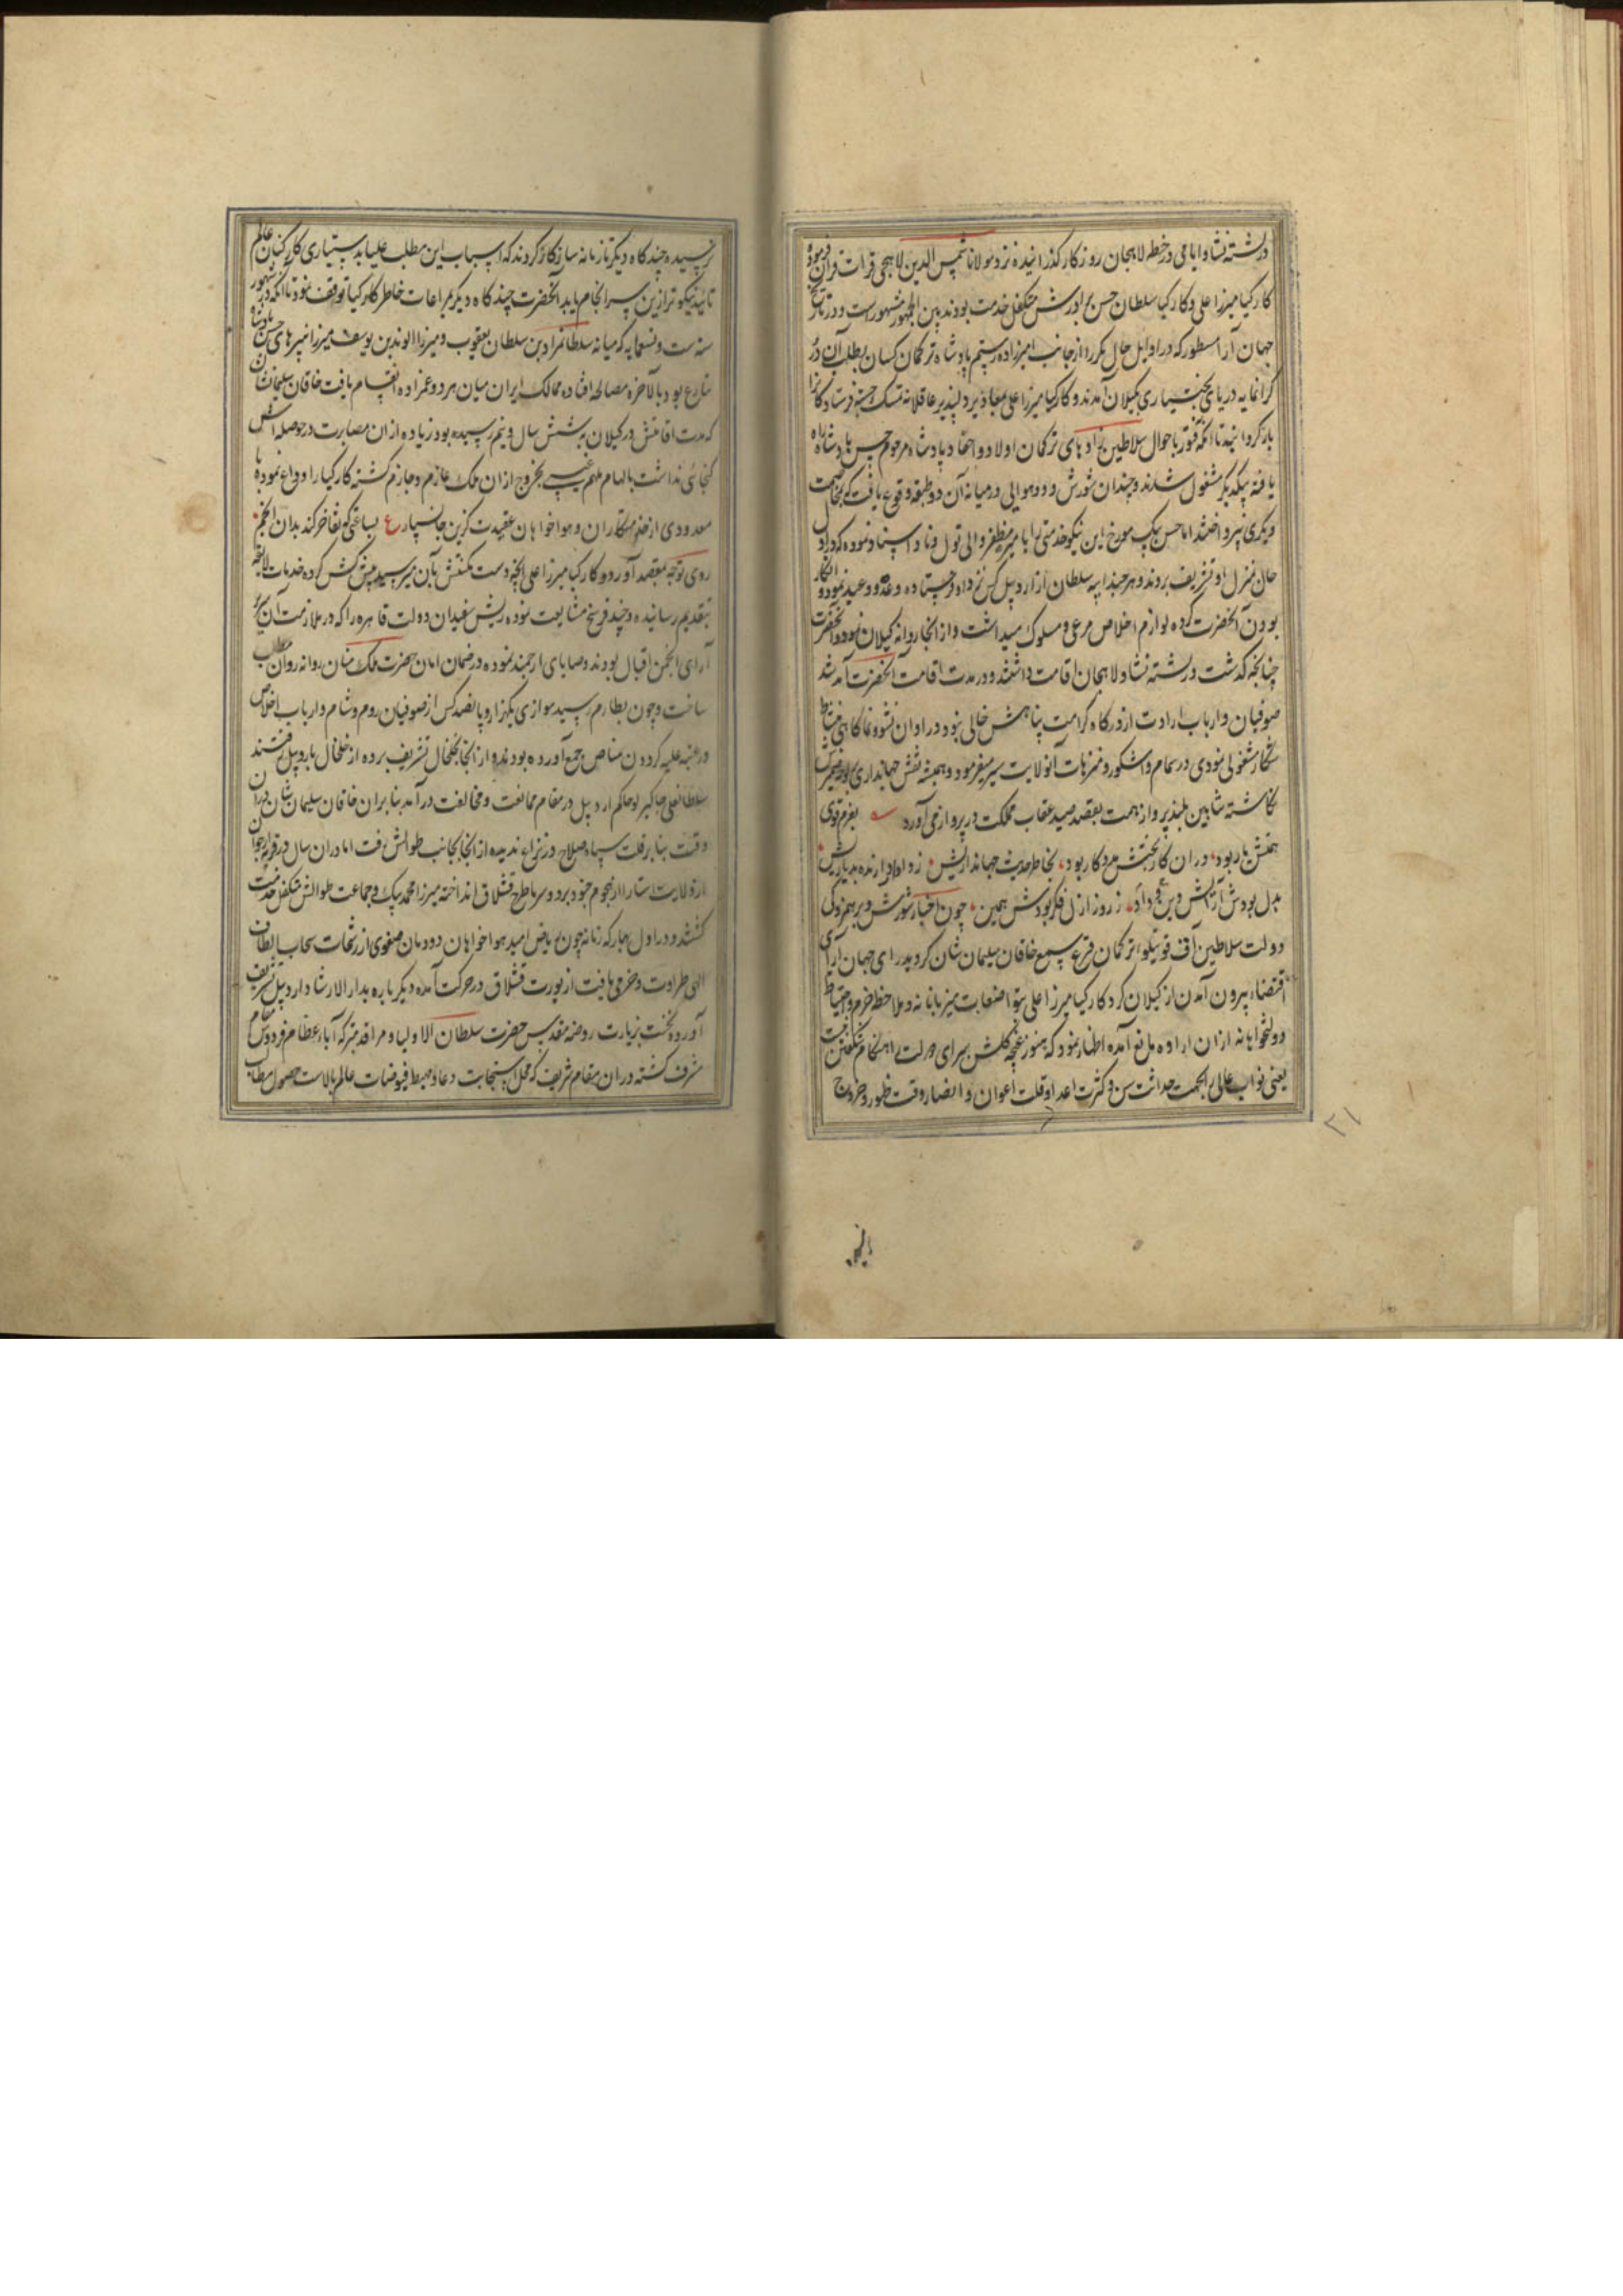 در رشته نشا و ایامی در خطه لاهیجان روزگار گذرانیده نزد مولانا شمس الدین لاهجی قرات قرآن فرموده
کارکیا میرزا علی و کارکیا سلطان حسن برادرش متکفل خدمت بودند بین الجمهور مشهور است و در تاریخ
جهان آرا مسطور که در اوایل حال مکرر از جانب امیرزاده رستم پادشاه ترکمان کسان بطلب آن در
گرانمایه دریای بختیاری بگیلان آمدند و کارکیا میرزا علی بمعاذیر دلپذیر عاقلانه تمسک جسته فرستادگانرا
بازگردانید تا آنکه فتور باحوال سلاطین نژادهای ترکمان اولاد و احفاد پادشاه مرحوم حسن پادشاه راه
یافته بیکدیگر مشغول شدند و چندان شورش و دوهوایی در میانه آن دو طبقه وقوع یافت که بمخاصمت
دیگری نپرداختند اما حسن بیک مورخ این نیکو خدمتی را با میر مظفر والی تول و ناو اسناد نموده که در اول
حال بمنزل او تشریف بردند و هر چند ایبه سلطان از اردبیل کس نزد او فرستاده وعده و وعید نمود و انکار
بودن آنحضرت کرده لوازم اخلاص مرعی و مسلوک میداشت و از آنجا روانه گیلان نمود و آنحضرت
چنانچه گذشت در رشته نشا و لاهیجان اقامت داشتند و در مدت اقامت آنحضرت آمد شد
صوفیان و ارباب ارادت از درگاه کرامت پناهش خالی نبود در اوان نشو و نما گاهی بنشاط
شکار مشغولی نمودی در سمام و اشکور و متنزهات آنولایت سیر میفرمود و همیشه نقش جهانداری بر لوح ضمیرش
نگاشته شاهین بلند پرواز همت بقصد صید عقاب مملکت در پرواز می آورد بعزم قوی
همتش یار بود در ان کار بختش مددکار بود بخاطر حدیث جهاندا‌ریش زدادار دارنده بد یاریش
بدل بودش آرایش دین و داد ز روز ازل فکر بودش همین چون اخبار شورش و برهم زدگی
دولت سلاطین آق قوینلو اتر کمان قرع سمع خاقان سلیمان شان گردید رای جهان آرای
اقتضاء بیرون آمدن از گیلان کرد کارکیا میرزا علی بتواضعات میزبانانه و ملاحظه حزم و احتیاط
دولتخواهانه ازان اراده مانع آمده اظهار نمود که هنوز غنچه گلشن سرای دولت را هنگام شکفتن نیست
یعنی نواب عالی را بجهت حداثت سن و کثرت اعدا و قلت اعوان و انصار وقت ظهور و خروج
نرسیده چند گاه دیگر تا زمانه سازگار گردد که اسباب این مطلب علیا بدستیاری کارکنان عالم
تائید نیکوتر ازین سرانجام یابد آنحضرت چند گاه دیگر بمراعات خاطر کارکیا توقف نمود تا آنکه در شهور
سنه ست و تسعمایه که میانه سلطانمراد بن سلطان یعقوب و میرزا الوند بن یوسف میرزا نبیرهای حسن پادشاه
تنازع بود بالآخره مصالحه افتاده ممالک ایران میان هر دو عمزاده انقسام یافت خاقان سلیمان شان
که مدت اقامتش در گیلان بشش سال و نیم رسیده بود زیاده ازان مصابرت در حوصله اش
گنجائی نداشت بالهام ملهم غیبی بخروج ازان ملک عازم و جازم گشته کارکیا را وداع نموده با
معدودی از خدمتکاران و هواخواهان عقیدت گزین جانسپار ع بساعتی که تفاخر کند بدان انجم
روی توجه بمقصد آورد و کارکیا میرزا علی آنچه دست مکنتش بآن میرسید پیشکش کرده خدمات لایقه
بتقدیم رسانیده و چند فرسخ مشایعت نموده ریش سفیدان دولت قاهره را که در ملازمت آن سریر
آرای انجمن اقبال بودند وصایای ارجمند نموده در ضمان امان حضرت ملک منان روانه روان مطلب
ساخت و چون بطارم رسید موازی یکهزار و پانصد کس از صوفیان روم و شام و ارباب اخلاص
در عتبه علیه گردون مناص جمع آورده بودند و از آنجا بخلخال تشریف برده از خلخال باردبیل رفتند
سلطانعلی چاکیرلو حاکم اردبیل در مقام ممانعت و مخالفت در آمد بنابران خاقان سلیمان شان در آن
وقت بنابر قلت سپاه صلاح در نزاع ندیده از آنجا بجانب طوالش رفت اما دران سال در قریه ارجوان
از ولایت استارا از هجوم جنود برد و سرما طرح قشلاق انداخته میرزا محمد بیک و جماعت طوالش متکفل خدمت
گشتند و در اول بهار که زمانه چون ریاض امید هواخواهان دودمان صفوی از رشحات سحاب الطاف
الهی طراوت و خرمی یافت از یورت قشلاق در حرکت آمده دیگر باره بدار الارشاد اردبیل تشریف
آورده نخست بزیارت روضه مقدس حضرت سلطان الاولیا و مراقد متبرکه آباء عظام فردوس مقام
مشرف گشته دران مقام شریف که محل استجابت دعا و مهبط فیوضات عالم بالاست حصول مطالب
۲۱